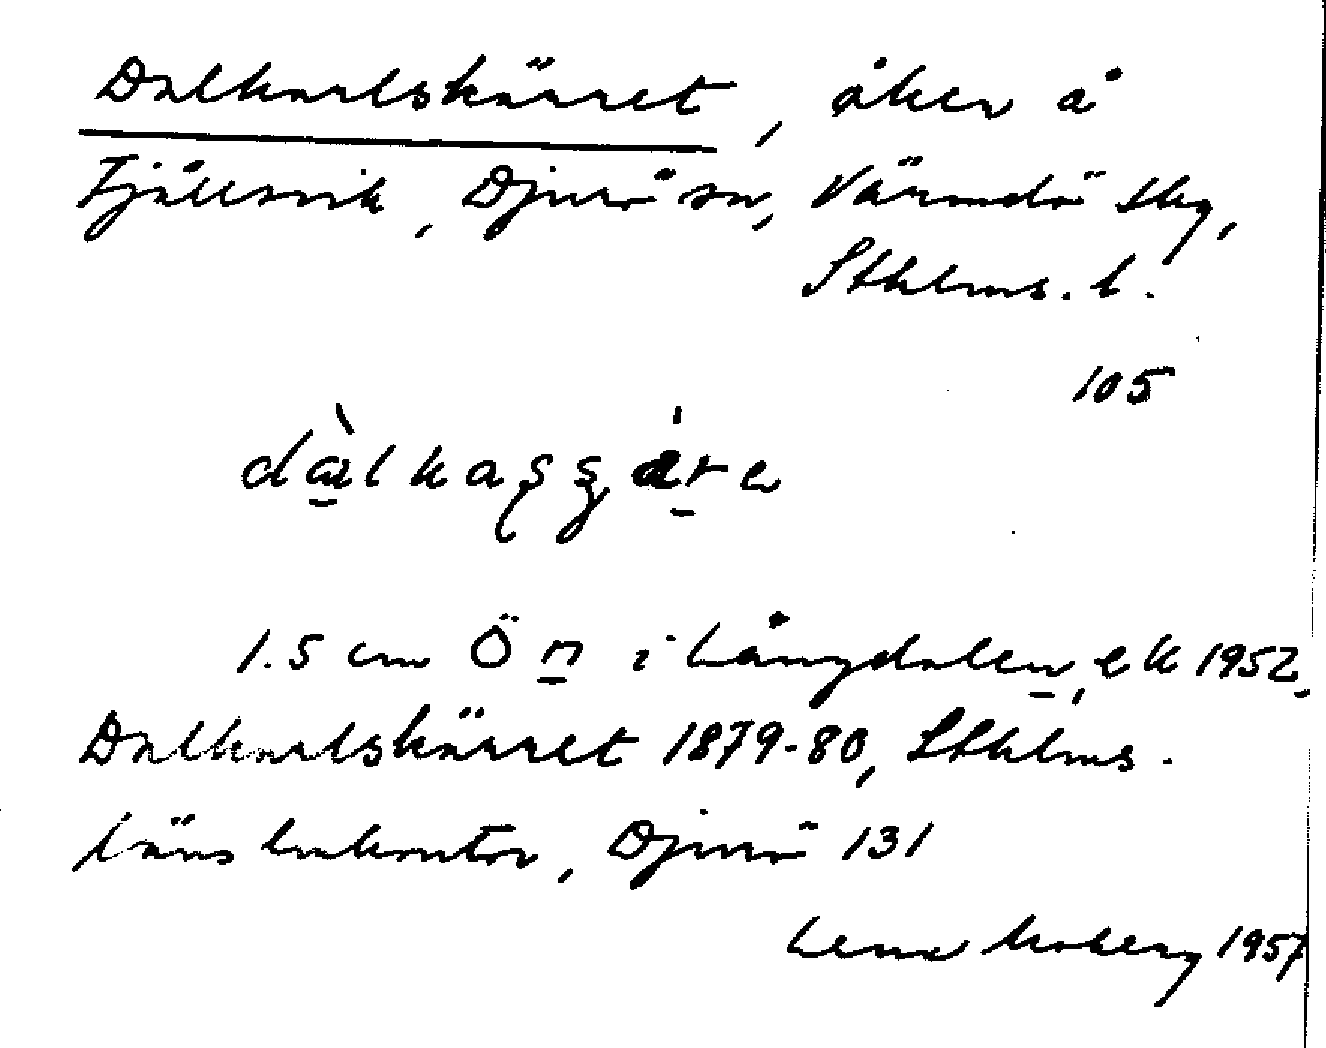 Dalkarlskärret, åker å
Fjällsvik, Djurö sn, Värmdö skg,
Sthlms. l.
105
1.5 cm Ö n i Långdalen, ek 1952,
Dalkarlskärret 1879-80, Sthlms.
läns lmkontor, Djurö 131
Lena Moberg 1957